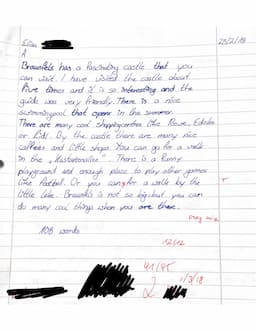 23/2/18
A
Braunfels has a fascinating castle that you
can visit. I have visited the castle about
five times and it is so interesting and the
guide was very friendly. There is a nice
swimmingpool that opens in the summer.
There are many cool shoppingcentres like Rewe, Edeka
or Lidl. By the castle there are many nice
caffees and little shops. You can go for a walk
in the "Kastanienallee". There is a funny
playground and enough place to play other games
like football. Or you can go for a walk by the
little lake. Braunfels is not so big but you can
do many cool things when you are there.
108 words
12/12
41/45
2
1/3/18